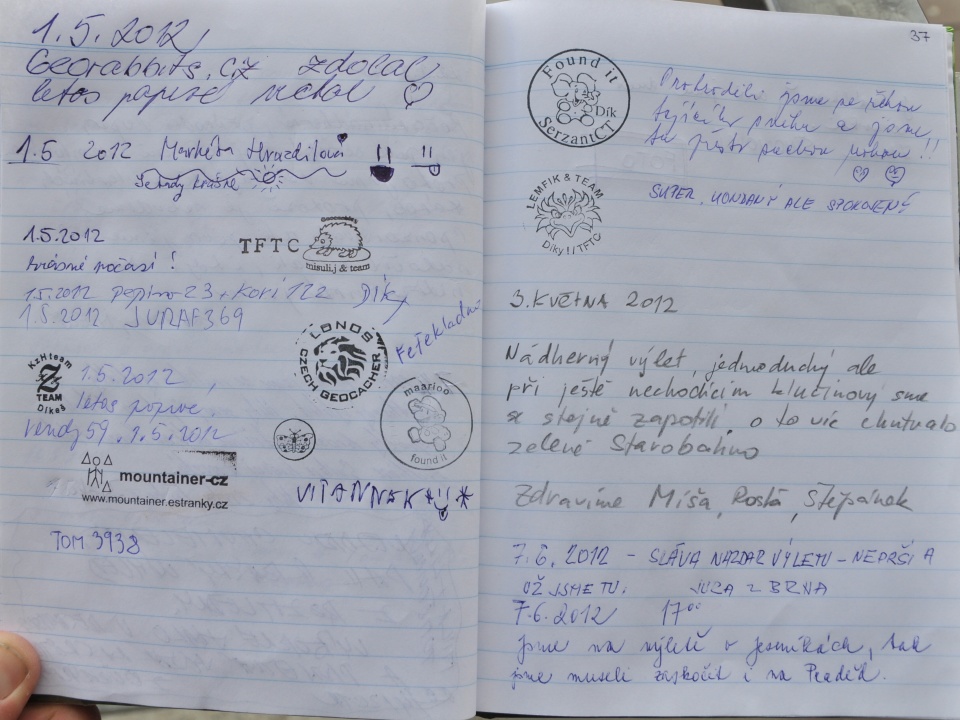 1.5.2012
Georabbits.cz zdolal
letos poprvé vrchol
1.5 2012 Markéta Hrazdilová
1.5.2012
krásné počasí!
TFTC
misuli.j & team
1.5.2012 Pepino23 + Kori122 Díky
1.5.2012 JURAF369
LONOS
CZECH GEOCACHER
KzH team
Z
TEAM
Díkeš
1.5.2012
letos poprvé.
Vendy59, 1.5.2012
maarioo
found it
mountainer-cz
www.mountainer.estranky.cz
TOM3938
37
Found it
Dík
SerzantCT
jsme
a jsme
LEMFIK & TEAM
Díky!/TFTC
SUPER, ALE SPOKOJENÝ
3. KVĚTNA 2012
Nádherný výlet, jednoduchý ale
při ještě nechodícím klučinovy sme
se stejně zapotili, o to víc chutnalo
zelené Starobahno
Zdravíme Míša, Rosťa, Štěpánek
7.6.2012 - SLÁVA NAZDAR VÝLETU - NEPRŠÍ A
UŽ JSME TU. Z BRNA
7.6.2012 17⁰⁰
jsme na výletě v Jeseníkách, tak
jsme museli zaskočit i na Praděd.